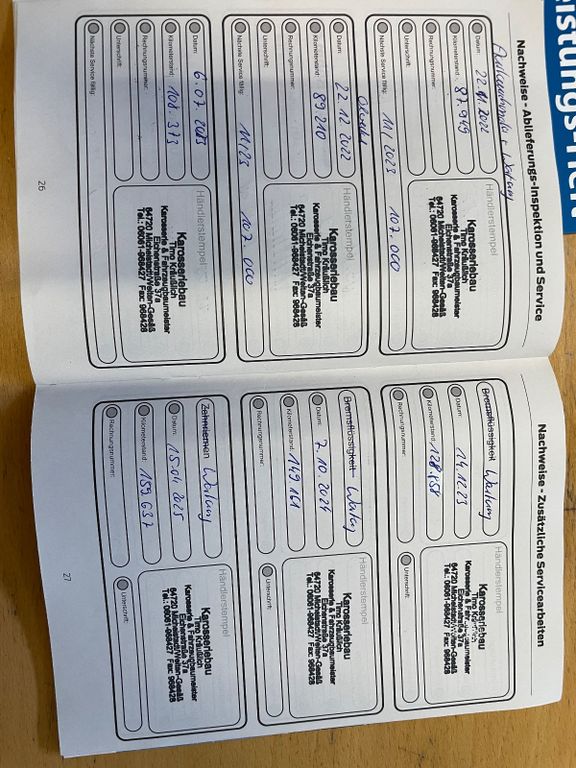 eistungs-Heft
Nachweise - Ablieferungs-Inspektion und Service
Wartung
Datum: 22.11.2022
Kilometerstand: 87.949
Rechnungsnummer:
Unterschrift:
Nächste Service fällig: 11/2023 107.000
Händlerstempel
Karosseriebau
Timo Kräußlich
Karosserie & Fahrzeugbaumeister
Eichenstraße 37a
64720 Michelstadt/Weiten-Gesäß
Tel.: 06061-968427 Fax: 968428
Datum: 22.12.2022
Kilometerstand: 89210
Rechnungsnummer:
Unterschrift:
Nächste Service fällig: 11/23 107.000
Händlerstempel
Karosseriebau
Timo Kräußlich
Karosserie & Fahrzeugbaumeister
Eichenstraße 37a
64720 Michelstadt/Weiten-Gesäß
Tel.: 06061-968427 Fax: 968428
Datum: 6.07.2023
Kilometerstand: 108.373
Rechnungsnummer:
Unterschrift:
Nächste Service fällig:
Händlerstempel
Karosseriebau
Timo Kräußlich
Karosserie & Fahrzeugbaumeister
Eichenstraße 37a
64720 Michelstadt/Weiten-Gesäß
Tel.: 06061-968427 Fax: 968428
26
Nachweise - Zusätzliche Servicearbeiten
Bremsflüssigkeit Wartung
Datum: 14.12.23
Kilometerstand: 128.858
Rechnungsnummer:
Händlerstempel
Karosseriebau
Timo Kräußlich
Karosserie & Fahrzeugbaumeister
Eichenstraße 37a
64720 Michelstadt/Weiten-Gesäß
Tel.: 06061-968427 Fax: 968428
Unterschrift:
Bremsflüssigkeit Wartung
Datum: 7.10.2024
Kilometerstand: 149.161
Rechnungsnummer:
Händlerstempel
Karosseriebau
Timo Kräußlich
Karosserie & Fahrzeugbaumeister
Eichenstraße 37a
64720 Michelstadt/Weiten-Gesäß
Tel.: 06061-968427 Fax: 968428
Unterschrift:
Zahnriemen Wartung
Datum: 15.04.2025
Kilometerstand: 159.637
Rechnungsnummer:
Händlerstempel
Karosseriebau
Timo Kräußlich
Karosserie & Fahrzeugbaumeister
Eichenstraße 37a
64720 Michelstadt/Weiten-Gesäß
Tel.: 06061-968427 Fax: 968428
Unterschrift:
27